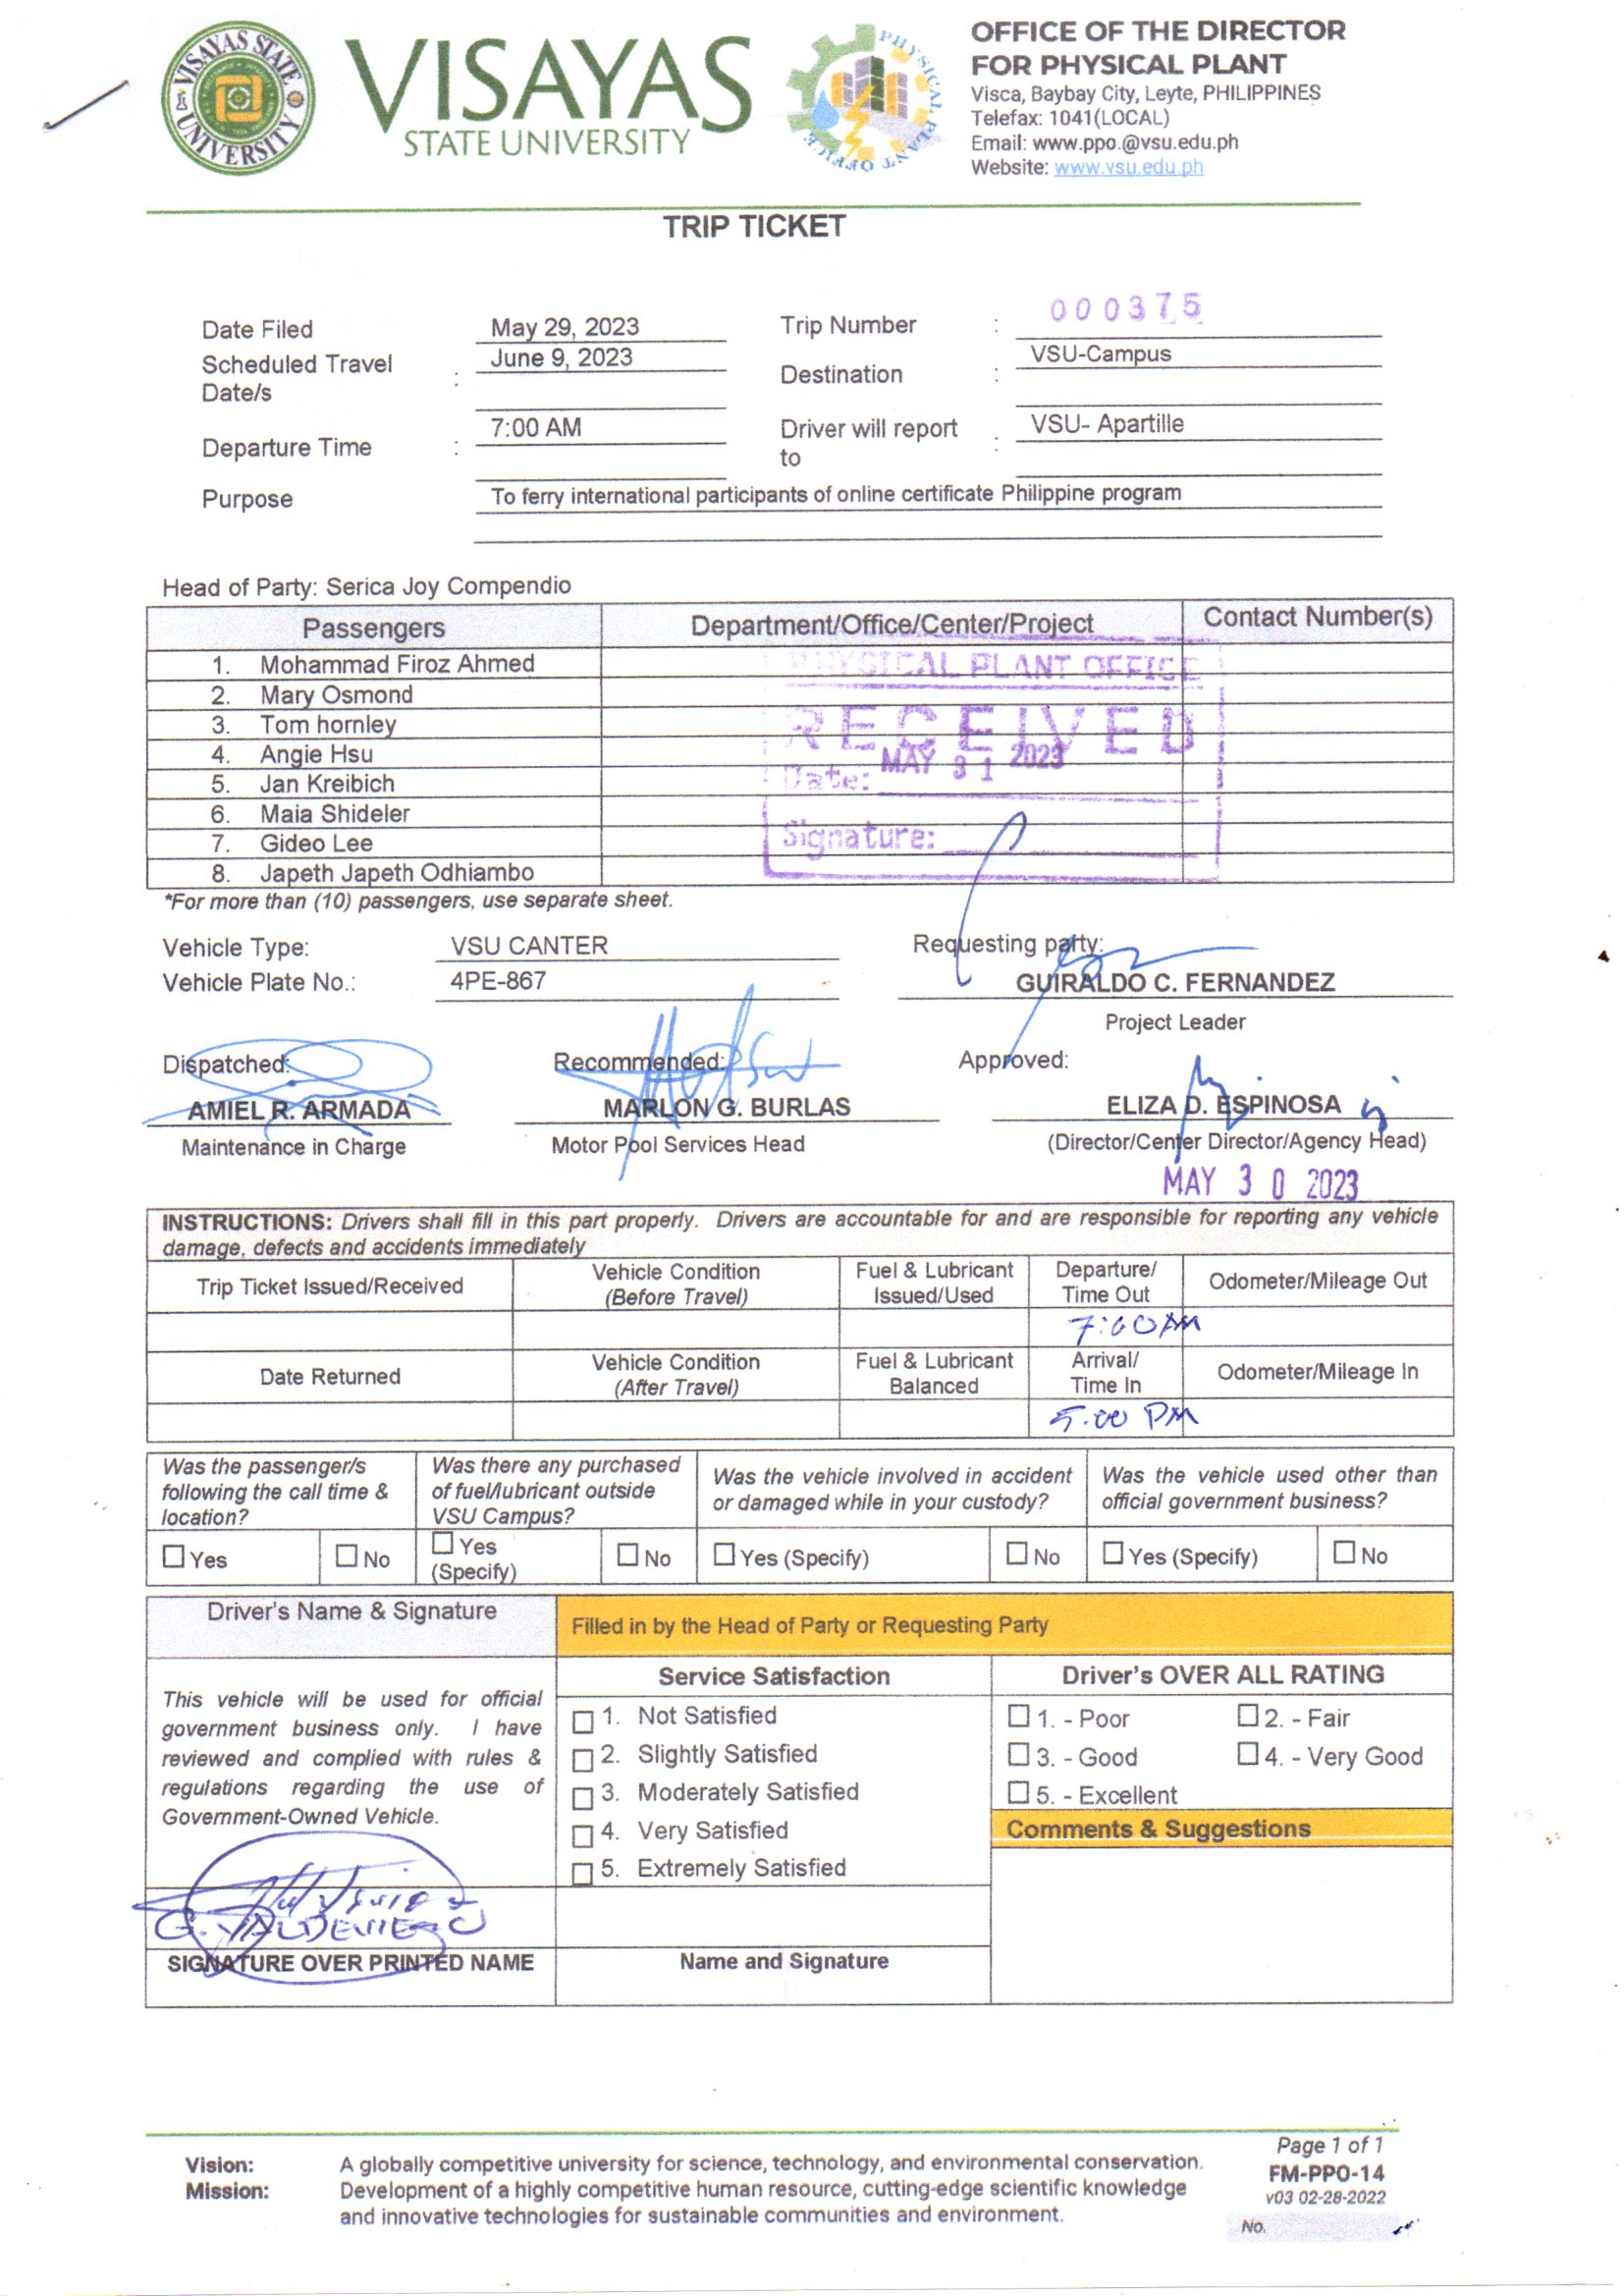 VISAYAS STATE UNIVERSITY
VISAYAS
STATE UNIVERSITY
PHYSICAL PLANT OFFICE
OFFICE OF THE DIRECTOR
FOR PHYSICAL PLANT
Visca, Baybay City, Leyte, PHILIPPINES
Telefax: 1041(LOCAL)
Email: www.ppo.@vsu.edu.ph
Website: www.vsu.edu.ph
TRIP TICKET
Date Filed May 29, 2023 Trip Number : 000375
Scheduled Travel Date/s : June 9, 2023 Destination : VSU-Campus
Departure Time : 7:00 AM Driver will report to : VSU- Apartille
Purpose To ferry international participants of online certificate Philippine program
Head of Party: Serica Joy Compendio
Passengers Department/Office/Center/Project Contact Number(s)
1. Mohammad Firoz Ahmed
2. Mary Osmond
3. Tom hornley
4. Angie Hsu
5. Jan Kreibich
6. Maia Shideler
7. Gideo Lee
8. Japeth Japeth Odhiambo
PHYSICAL PLANT OFFICE
RECEIVED
Date: MAY 31 2023
Signature:
*For more than (10) passengers, use separate sheet.
Vehicle Type: VSU CANTER Requesting party:
Vehicle Plate No.: 4PE-867 GUIRALDO C. FERNANDEZ
Project Leader
Dispatched: Recommended: Approved:
AMIEL R. ARMADA MARLON G. BURLAS ELIZA D. ESPINOSA
Maintenance in Charge Motor Pool Services Head (Director/Center Director/Agency Head)
MAY 30 2023
INSTRUCTIONS: Drivers shall fill in this part properly. Drivers are accountable for and are responsible for reporting any vehicle
damage, defects and accidents immediately
Trip Ticket Issued/Received Vehicle Condition (Before Travel) Fuel & Lubricant Issued/Used Departure/ Time Out Odometer/Mileage Out
7:00 AM
Date Returned Vehicle Condition (After Travel) Fuel & Lubricant Balanced Arrival/ Time In Odometer/Mileage In
5:00 PM
Was the passenger/s following the call time & location? Was there any purchased of fuel/lubricant outside VSU Campus? Was the vehicle involved in accident or damaged while in your custody? Was the vehicle used other than official government business?
Yes No Yes (Specify) No Yes (Specify) No Yes (Specify) No
Driver's Name & Signature Filled in by the Head of Party or Requesting Party
Service Satisfaction Driver's OVER ALL RATING
This vehicle will be used for official
government business only. I have
reviewed and complied with rules &
regulations regarding the use of
Government-Owned Vehicle.
1. Not Satisfied
2. Slightly Satisfied
3. Moderately Satisfied
4. Very Satisfied
5. Extremely Satisfied
1. - Poor 2. - Fair
3. - Good 4. - Very Good
5. - Excellent
Comments & Suggestions
SIGNATURE OVER PRINTED NAME Name and Signature
Vision: A globally competitive university for science, technology, and environmental conservation.
Mission: Development of a highly competitive human resource, cutting-edge scientific knowledge
and innovative technologies for sustainable communities and environment.
Page 1 of 1
FM-PPO-14
v03 02-28-2022
No.